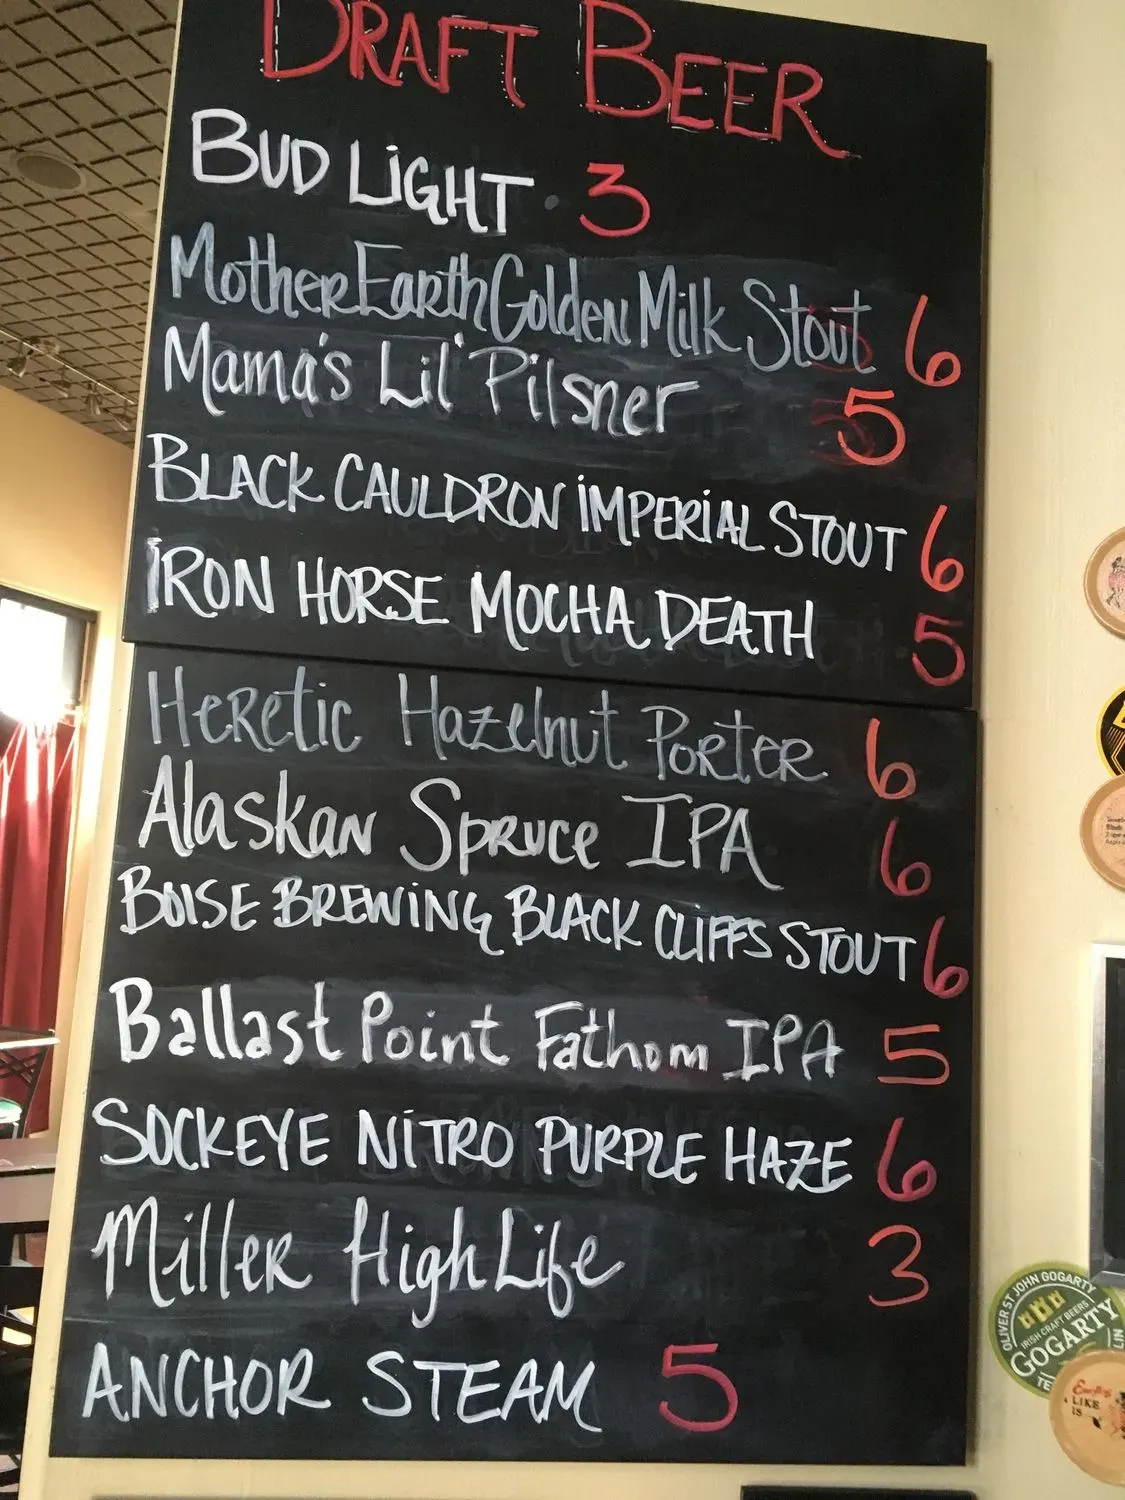 DRAFT BEER
BUD LIGHT · 3
Mother Earth Golden Milk Stout 6
Mama's Lil' Pilsner 5
BLACK CAULDRON IMPERIAL STOUT 6
IRON HORSE MOCHA DEATH 5
Heretic Hazelnut Porter 6
Alaskan Spruce IPA 6
BOISE BREWING BLACK CLIFFS STOUT 6
Ballast Point Fathom IPA 5
SOCKEYE NITRO PURPLE HAZE 6
Miller High Life 3
ANCHOR STEAM 5
OLIVER ST JOHN GOGARTY
IRISH CRAFT BEERS
GOGARTY
LIKE
IS